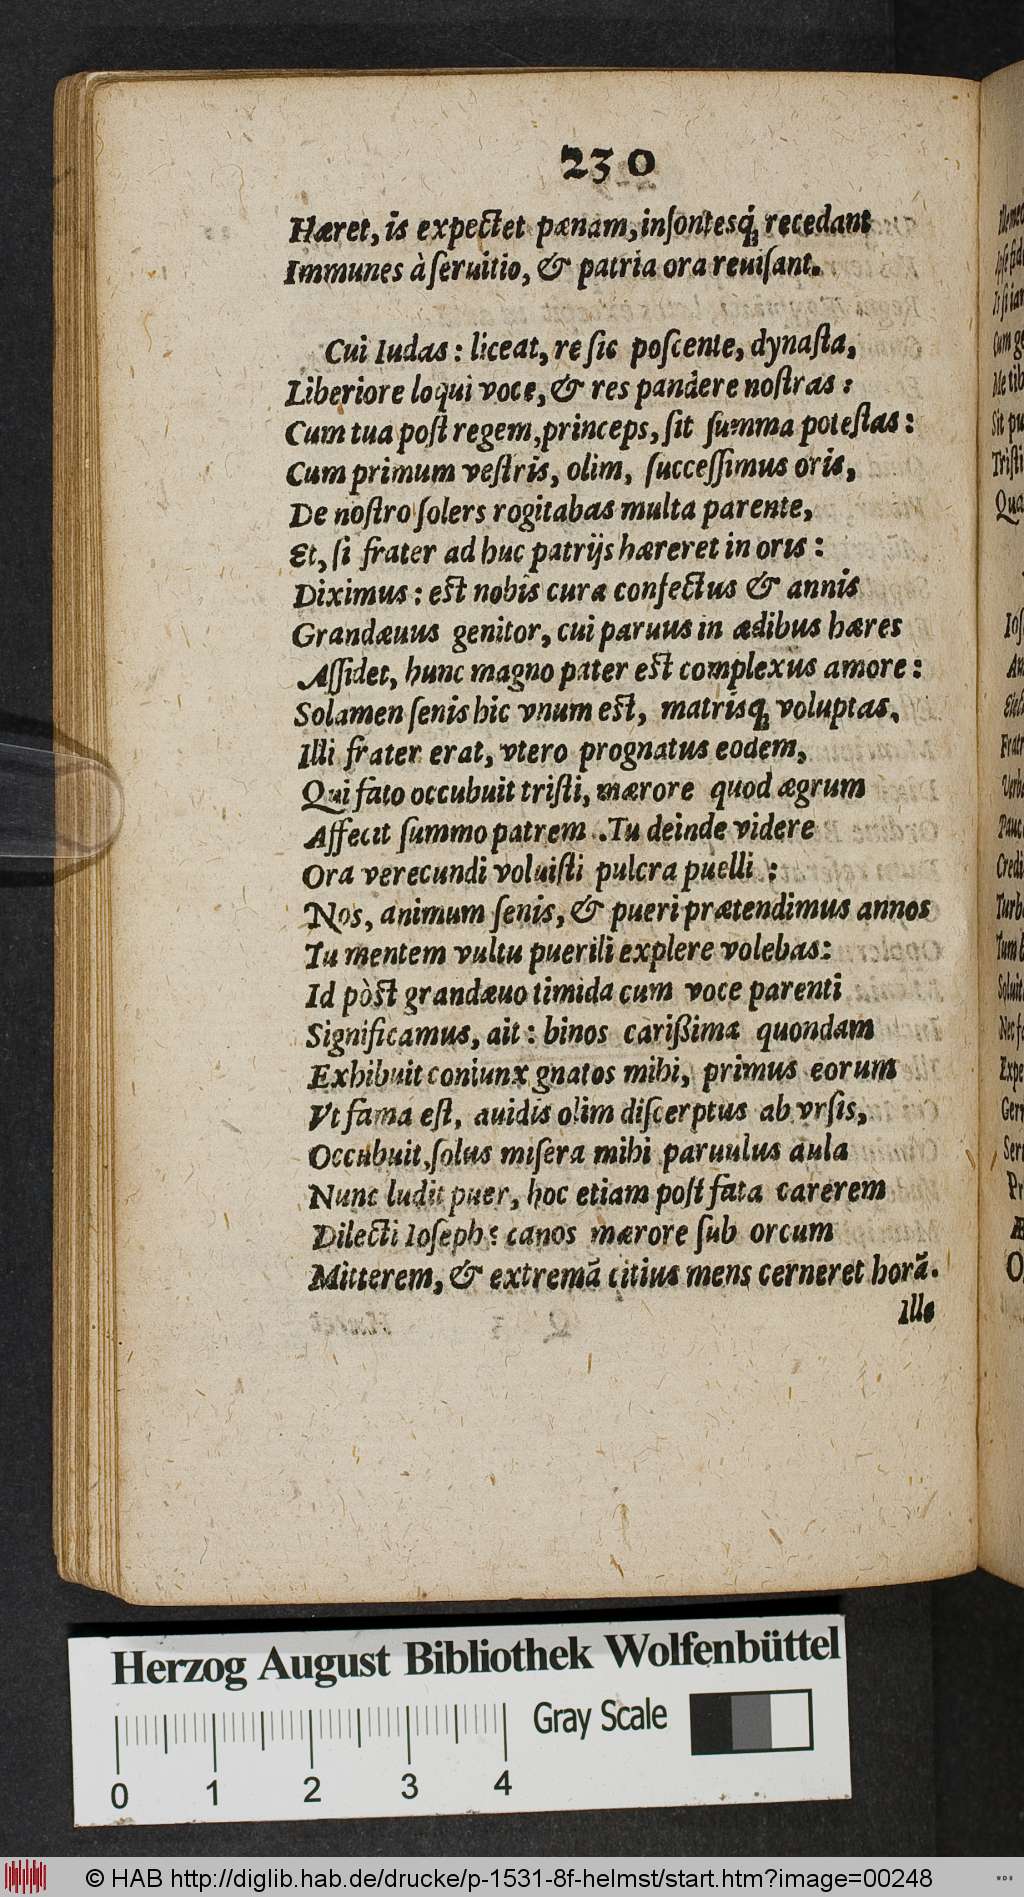 230
Hæret, is expectet pænam, insontesq́; recedant
Immunes à seruitio, & patria ora reuisant.
Cui Iudas: liceat, re sic poscente, dynasta,
Liberiore loqui voce, & res pandere nostras:
Cum tua post regem, princeps, sit summa potestas:
Cum primum vestris, olim, successimus oris,
De nostro solers rogitabas multa parente,
Et, si frater ad huc patrijs hæreret in oris:
Diximus: est nobis cura confectus & annis
Grandæuus genitor, cui paruus in ædibus hæres
Assidet, hunc magno pater est complexus amore:
Solamen senis hic vnum est, matrisq; voluptas.
Illi frater erat, vtero prognatus eodem,
Qui fato occubuit tristi, mærore quod ægrum
Affecit summo patrem. Tu deinde videre
Ora verecundi voluisti pulcra puelli:
Nos, animum senis, & pueri prætendimus annos
Tu mentem vultu puerili explere volebas:
Id pòst grandæuo timida cum voce parenti
Significamus, ait: binos carißima quondam
Exhibuit coniunx gnatos mihi, primus eorum
Vt fama est, auidis olim discerptus ab vrsis,
Occubuit, solus misera mihi paruulus aula
Nunc ludit puer, hoc etiam post fata carerem
Dilecti Ioseph: canos mærore sub orcum
Mitterem, & extremã citius mens cerneret horã.
Ille
Herzog August Bibliothek Wolfenbüttel
Gray Scale
0 1 2 3 4
© HAB http://diglib.hab.de/drucke/p-1531-8f-helmst/start.htm?image=00248